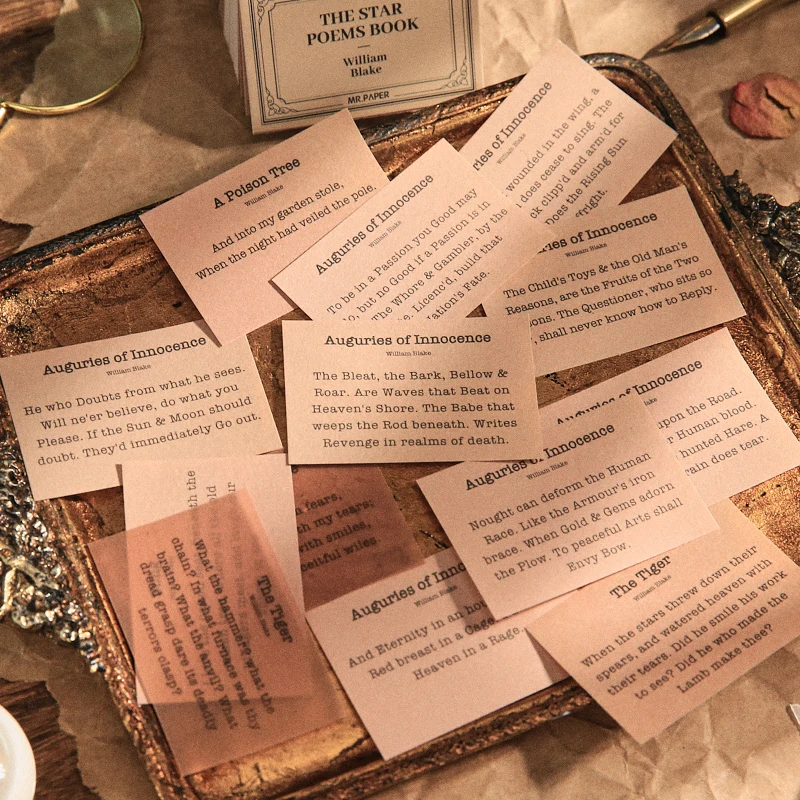 THE STAR
POEMS BOOK
William
Blake
MR.PAPER
A Poison Tree
William Blake
And into my garden stole,
When the night had veiled the pole,
Auguries of Innocence
William Blake
To be in a Passion you Good may
but no Good if a Passion is in
The Whore & Gambler, by the
Licenc'd, build that
Nation's Fate.
of Innocence
William Blake
wounded in the wing, a
does cease to sing. The
clipp'd and arm'd for
Does the Rising Sun
of Innocence
William Blake
The Child's Toys & the Old Man's
Reasons, are the Fruits of the Two
The Questioner, who sits so
shall never know how to Reply.
Auguries of Innocence
William Blake
He who Doubts from what he sees.
Will ne'er believe, do what you
Please. If the Sun & Moon should
doubt. They'd immediately Go out.
Auguries of Innocence
William Blake
The Bleat, the Bark, Bellow &
Roar. Are Waves that Beat on
Heaven's Shore. The Babe that
weeps the Rod beneath. Writes
Revenge in realms of death.
Auguries of Innocence
upon the Road.
Human blood.
hunted Hare. A
does tear.
Auguries of Innocence
William Blake
Nought can deform the Human
Race. Like the Armour's iron
brace. When Gold & Gems adorn
the Plow. To peaceful Arts shall
Envy Bow.
with the
fears,
my tears;
with smiles,
wiles
The Tiger
William Blake
What the hammer? what the
chain? In what furnace was thy
brain? What the anvil? What
dread grasp dare its deadly
terrors clasp?
Auguries of
William Blake
And Eternity in an
Red breast in a Cage
Heaven in a Rage.
The Tiger
William Blake
When the stars threw down their
spears, and watered heaven with
their tears. Did he smile his work
to see? Did he who made the
Lamb make thee?